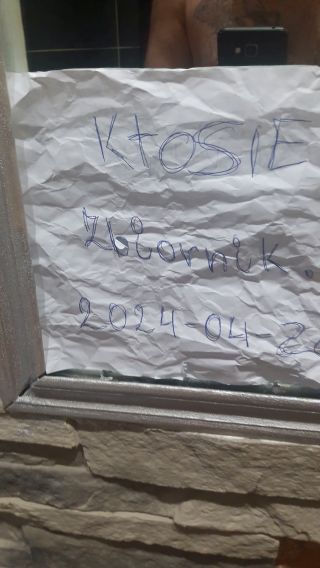 KtOSIE
Zbiornik.
2024-04-2